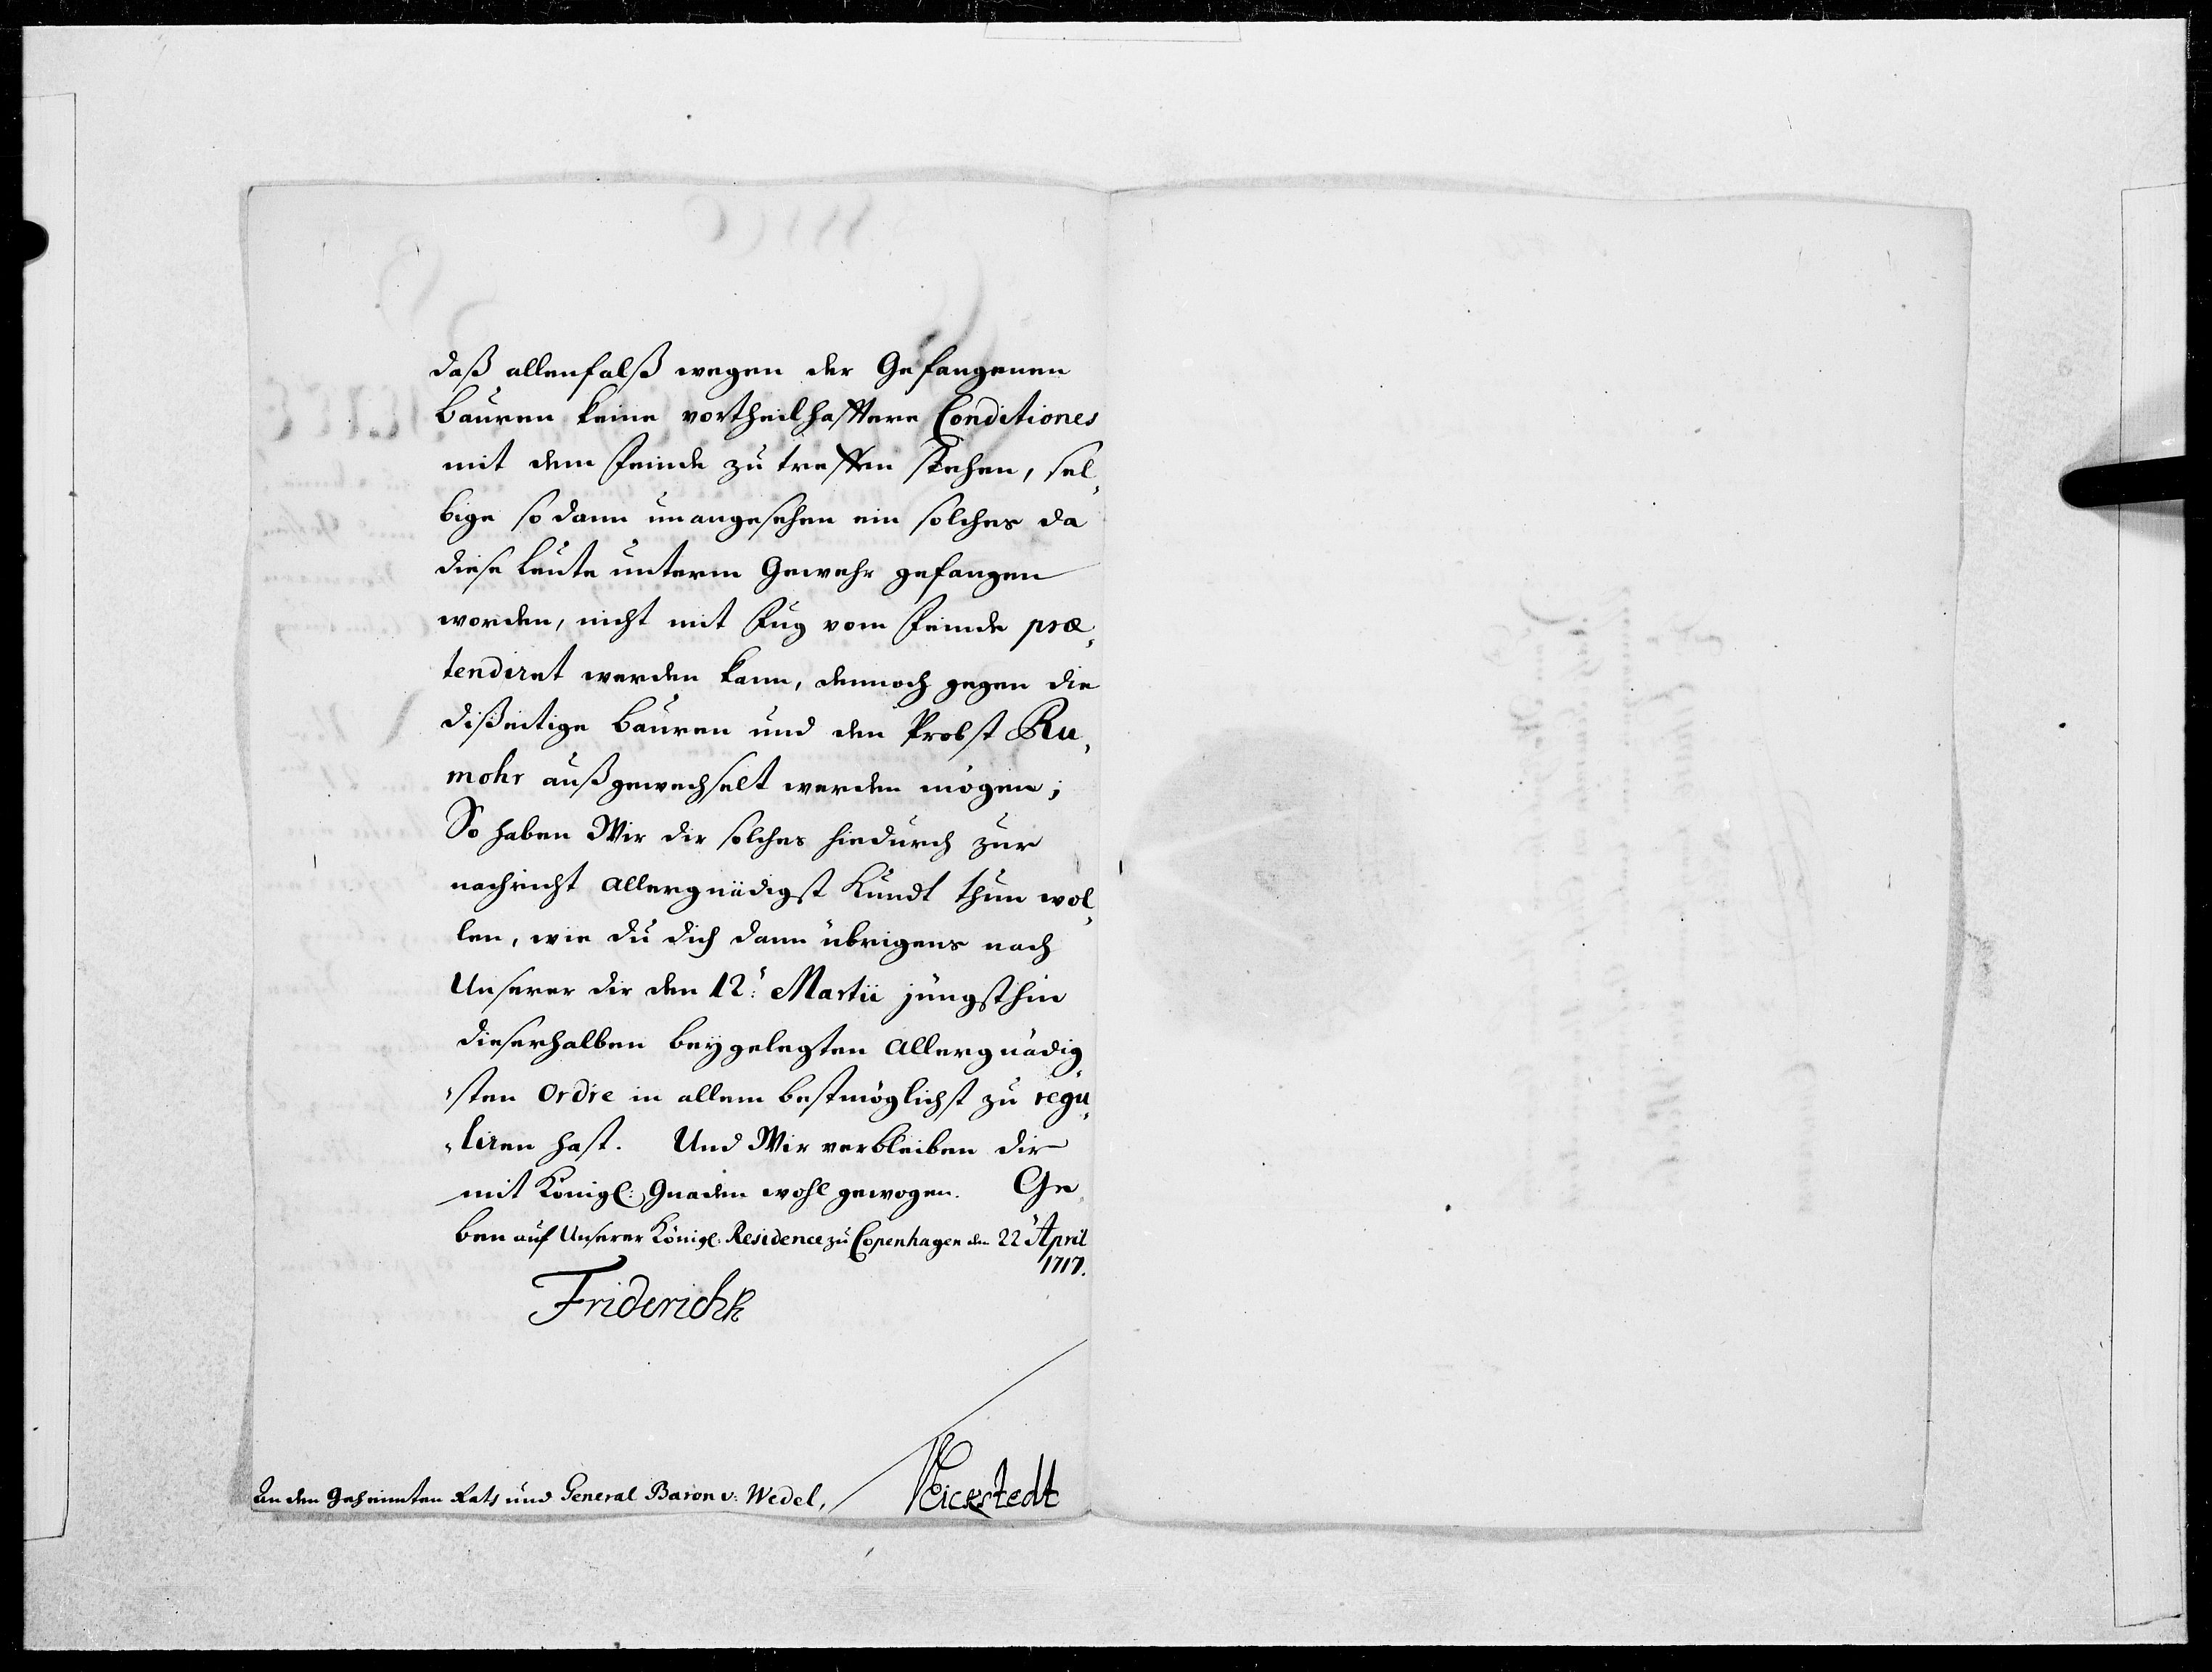 daß allenfalß wegen der Gefangenen
bauren keine vortheilhafftere Conditiones
mit dem feinde zu treffen stehen, sel¸
bige so dann unangesehen ein solches da
diese leute unterm Gewehr gefangen
worden, nicht mit fug vom feinde præ¸
tendiret werden kann, dennoch gegen die
dißeitige bauren und den Probst Ru¸
mohr außgewechselt werden mögen;
So haben Wir dir solches hiedurch zur
nachricht allergnädigst kundt thun wol¸
len, wie du dich dann übrigens nach
Unserer dir den 12: Martii jüngsthin
dieserhalben beygelegten allergnädig
¸sten ordre in allem bestmöglichst zu regu¸
¸liren hast. Und Wir verbleiben dir
mit Königl: Gnaden wohl gewogen. Ge¸
ben auf Unserer Königl: Residence zu Copenhagen den 22 April
1717.
Friderich R
An den Geheimten Raht und General Baron v: Wedel,
VEickstedt